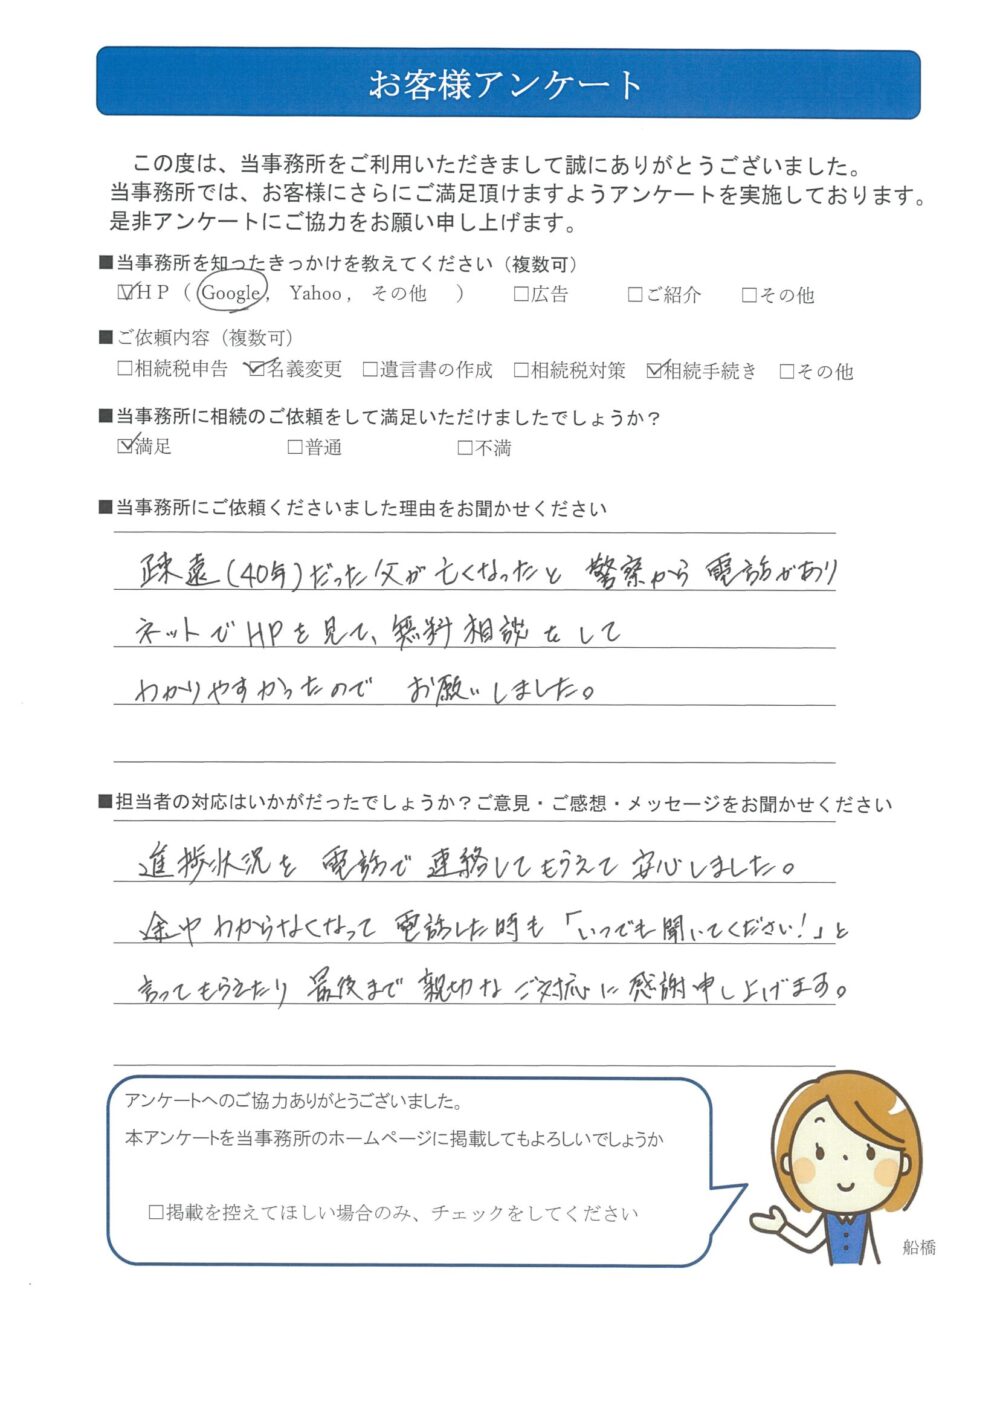 お客様アンケート
この度は、当事務所をご利用いただきまして誠にありがとうございました。
当事務所では、お客様にさらにご満足頂けますようアンケートを実施しております。
是非アンケートにご協力をお願い申し上げます。
■当事務所を知ったきっかけを教えてください（複数可）
☑ＨＰ（ Google， Yahoo， その他 ） □広告 □ご紹介 □その他
■ご依頼内容（複数可）
□相続税申告 ☑名義変更 □遺言書の作成 □相続税対策 ☑相続手続き □その他
■当事務所に相続のご依頼をして満足いただけましたでしょうか？
☑満足 □普通 □不満
■当事務所にご依頼くださいました理由をお聞かせください
疎遠(40年)だった父が亡くなったと 警察から電話があり
ネットでHPを見て、無料相談をして
わかりやすかったので お願いしました。
■担当者の対応はいかがだったでしょうか？ご意見・ご感想・メッセージをお聞かせください
進捗状況を 電話で連絡してもらえて安心しました。
途中わからなくなって電話した時も「いつでも聞いてください！」と
言ってもらえたり 最後まで親切なご対応に感謝申し上げます。
アンケートへのご協力ありがとうございました。
本アンケートを当事務所のホームページに掲載してもよろしいでしょうか
□掲載を控えてほしい場合のみ、チェックをしてください
船橋